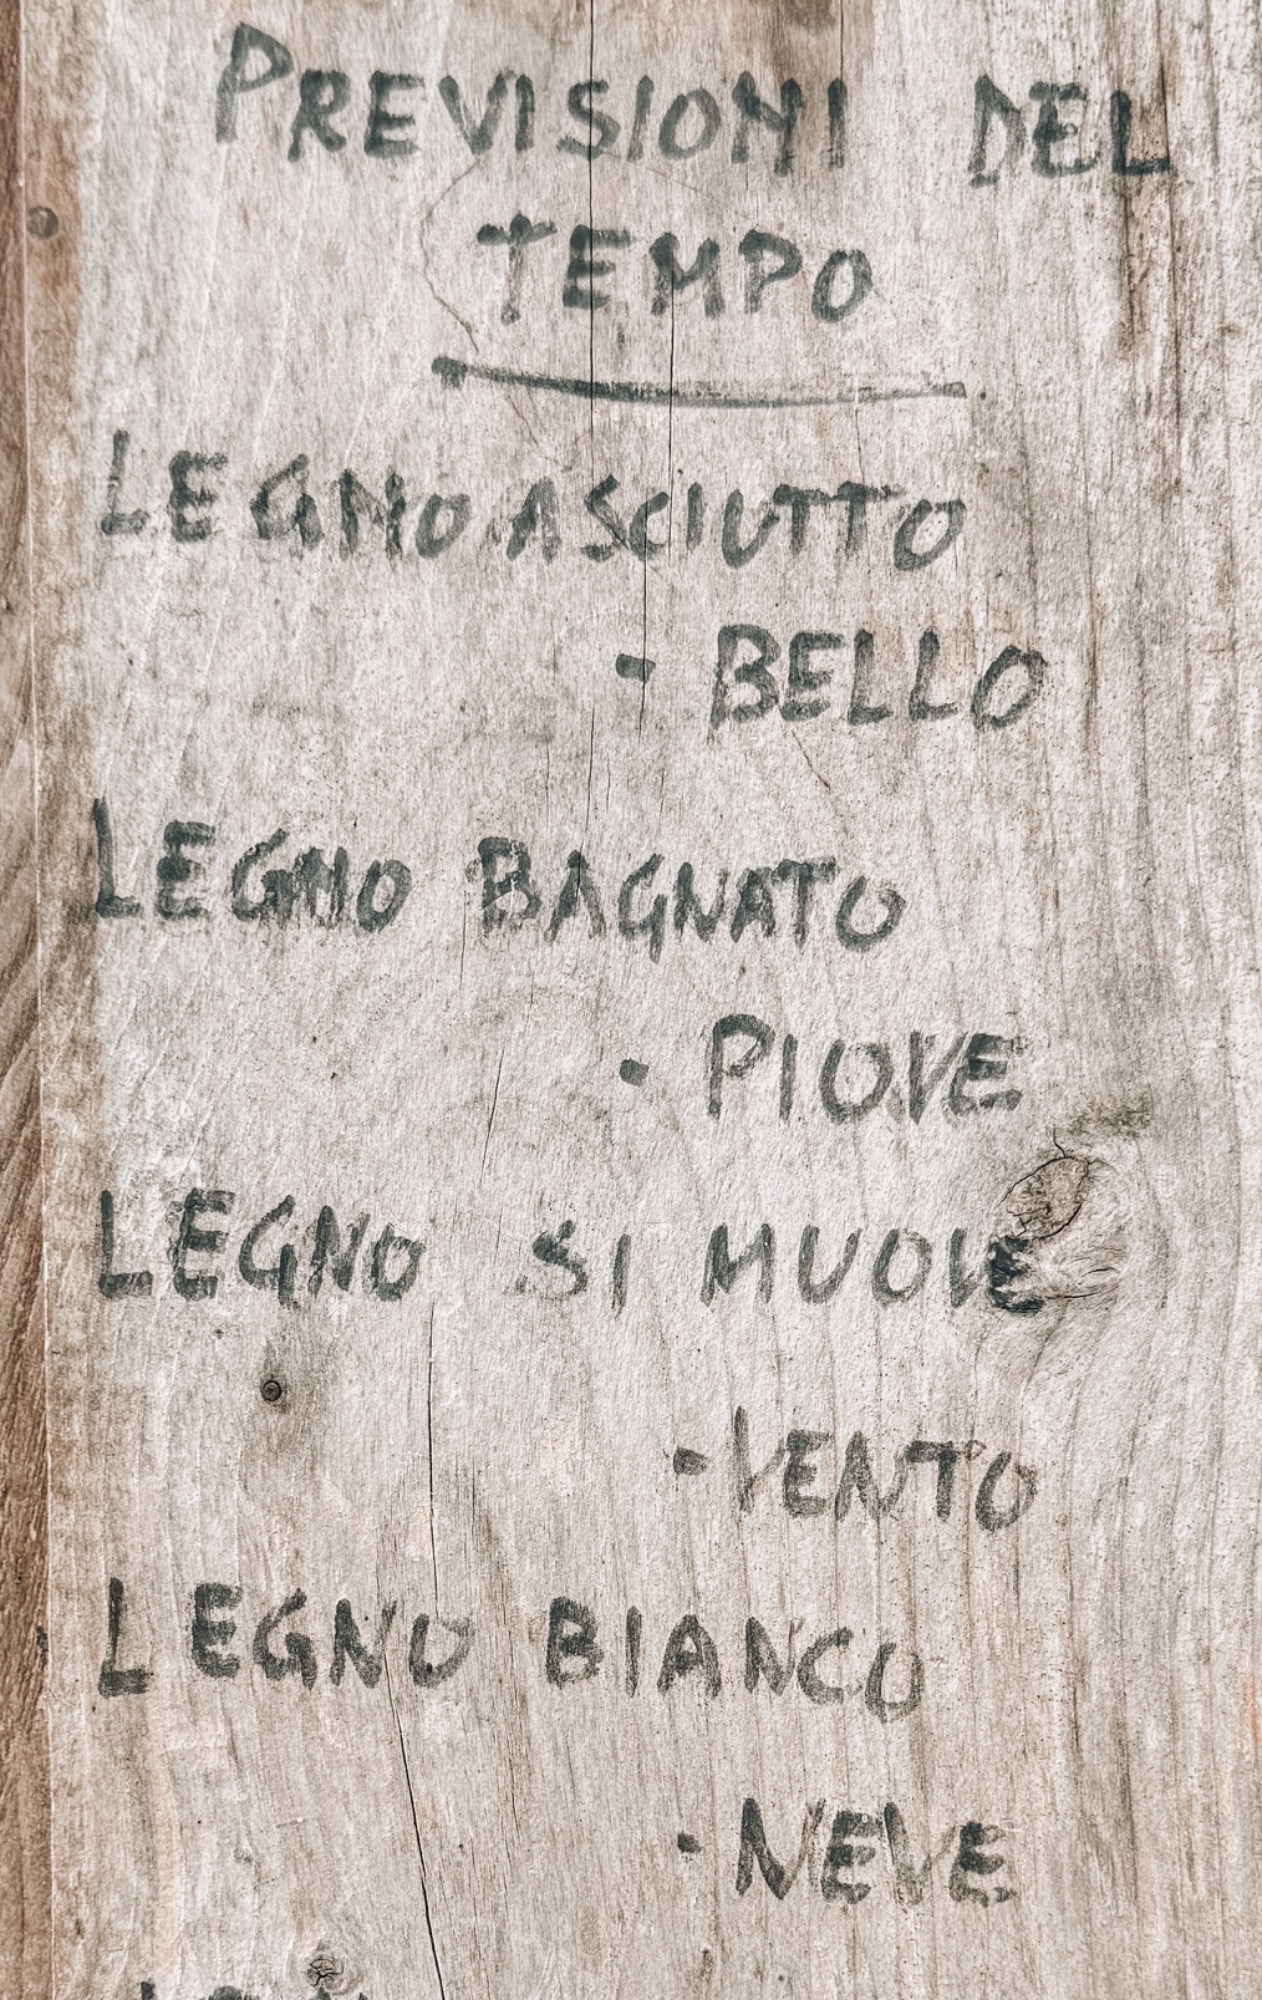 PREVISIONI DEL
TEMPO
LEGNO ASCIUTTO
- BELLO
LEGNO BAGNATO
- PIOVE
LEGNO SI MUOVE
- VENTO
LEGNO BIANCO
- NEVE